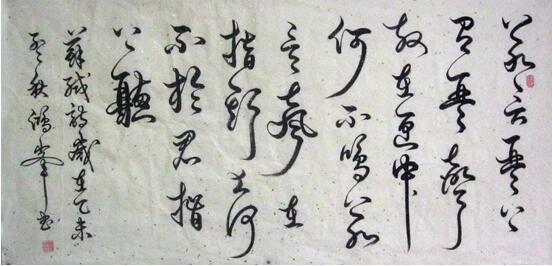 若言琴上
有琴聲
放在匣中
何不鳴若
言聲在
指頭上何
不於君指
上聽
蘇軾詩歲在乙未
秋鴻峯书